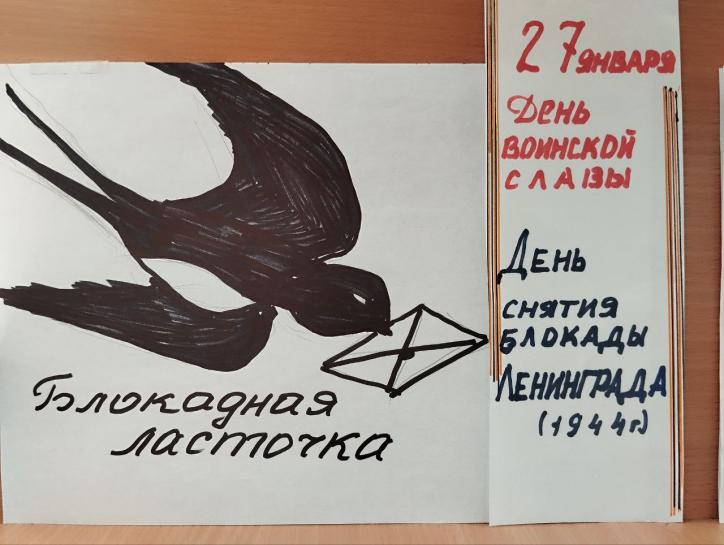 Блокадная
ласточка
27 января
День
воинской
славы
День
снятия
блокады
Ленинграда
(1944г.)